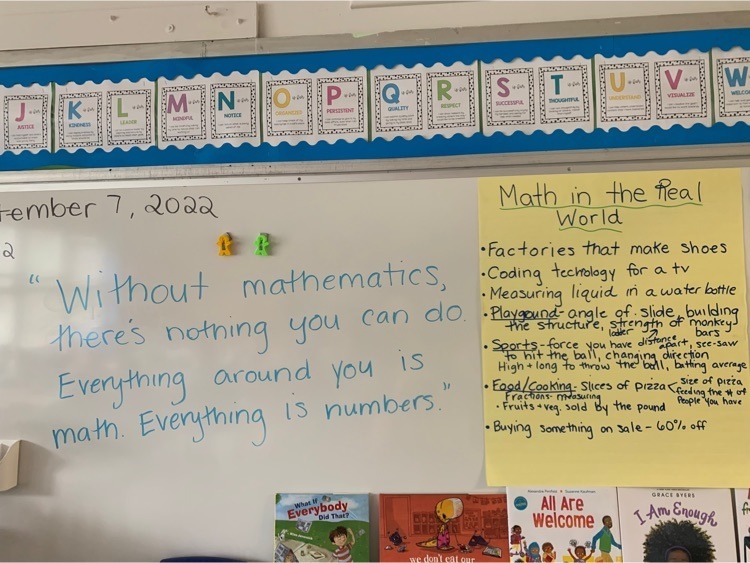 J
JUSTICE
K
KINDNESS
L
LEADER
M
MINDFUL
N
NOTICE
O
ORGANIZED
P
PERSISTENT
Q
QUALITY
R
RESPECT
S
SUCCESSFUL
T
THOUGHTFUL
U
UNDERSTAND
V
VISUALIZE
W
tember 7, 2022
2
"Without mathematics,
there's nothing you can do.
Everything around you is
math. Everything is numbers."
Math in the Real
World
• Factories that make shoes
• Coding technology for a tv
• Measuring liquid in a water bottle
• Playground - angle of slide, building
the structure, strength of monkey
bars
• Sports - force you have distance apart, see-saw
to hit the ball, changing direction
High + long to throw the ball, batting average
• Food/Cooking - Slices of pizza < size of pizza
Fractions - measuring
feeding the # of
people you have
• Fruits + veg. sold by the pound
• Buying something on sale - 60% off
What If
Everybody
Did That?
we don't eat our
All Are
Welcome
GRACE BYERS
I Am Enough